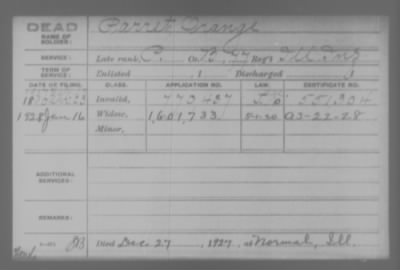 DEAD
NAME OF SOLDIER:
Garret Orange
SERVICE:
Late rank, P. Co. B, Reg't Ill Inf
TERM OF SERVICE:
Enlisted , 1 Discharged , 1
DATE OF FILING. CLASS. APPLICATION NO. LAW. CERTIFICATE NO.
Invalid, 770437 551304
1928 Jan 16 Widow, 1,601,733 A-3-22-28
Minor,
ADDITIONAL SERVICES:
REMARKS:
Died Dec. 27, 1927, at Normal, Ill.